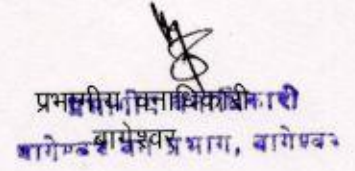 प्रभागीय वनाधिकारी
बागेश्वर
बागेश्वर वन प्रभाग, बागेश्वर